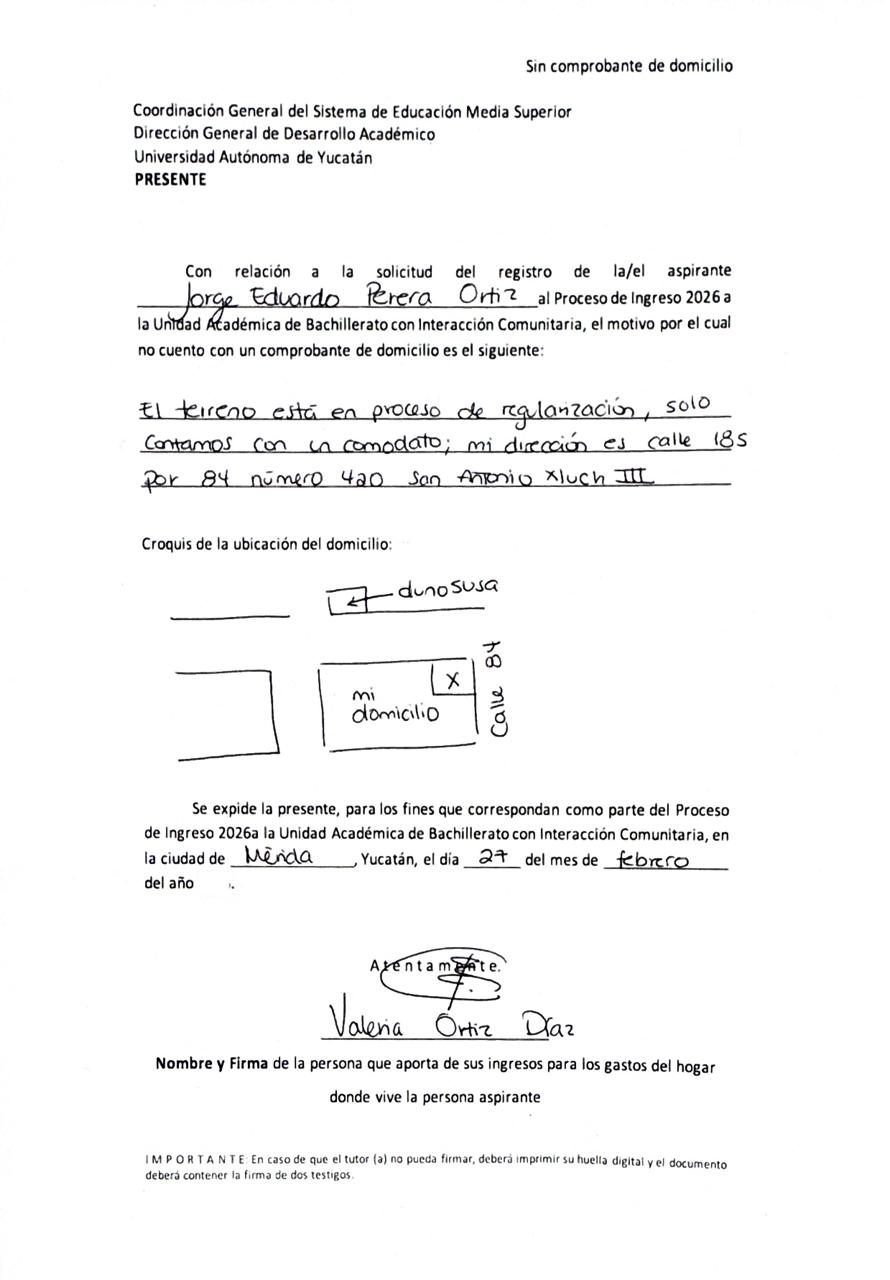 Sin comprobante de domicilio
Coordinación General del Sistema de Educación Media Superior
Dirección General de Desarrollo Académico
Universidad Autónoma de Yucatán
PRESENTE
Con relación a la solicitud del registro de la/el aspirante
Jorge Eduardo Perera Ortiz al Proceso de Ingreso 2026 a
la Unidad Académica de Bachillerato con Interacción Comunitaria, el motivo por el cual
no cuento con un comprobante de domicilio es el siguiente:
El terreno está en proceso de regularización, solo
Contamos con un comodato; mi dirección es calle 185
por 84 número 420 San Antonio Xluch III
Croquis de la ubicación del domicilio:
dunosusa
mi
domicilio
X
Calle 84
Se expide la presente, para los fines que correspondan como parte del Proceso
de Ingreso 2026a la Unidad Académica de Bachillerato con Interacción Comunitaria, en
la ciudad de Mérida, Yucatán, el día 27 del mes de febrero
del año .
Atentamente.
Valeria Ortiz Díaz
Nombre y Firma de la persona que aporta de sus ingresos para los gastos del hogar
donde vive la persona aspirante
IMPORTANTE: En caso de que el tutor (a) no pueda firmar, deberá imprimir su huella digital y el documento
deberá contener la firma de dos testigos.